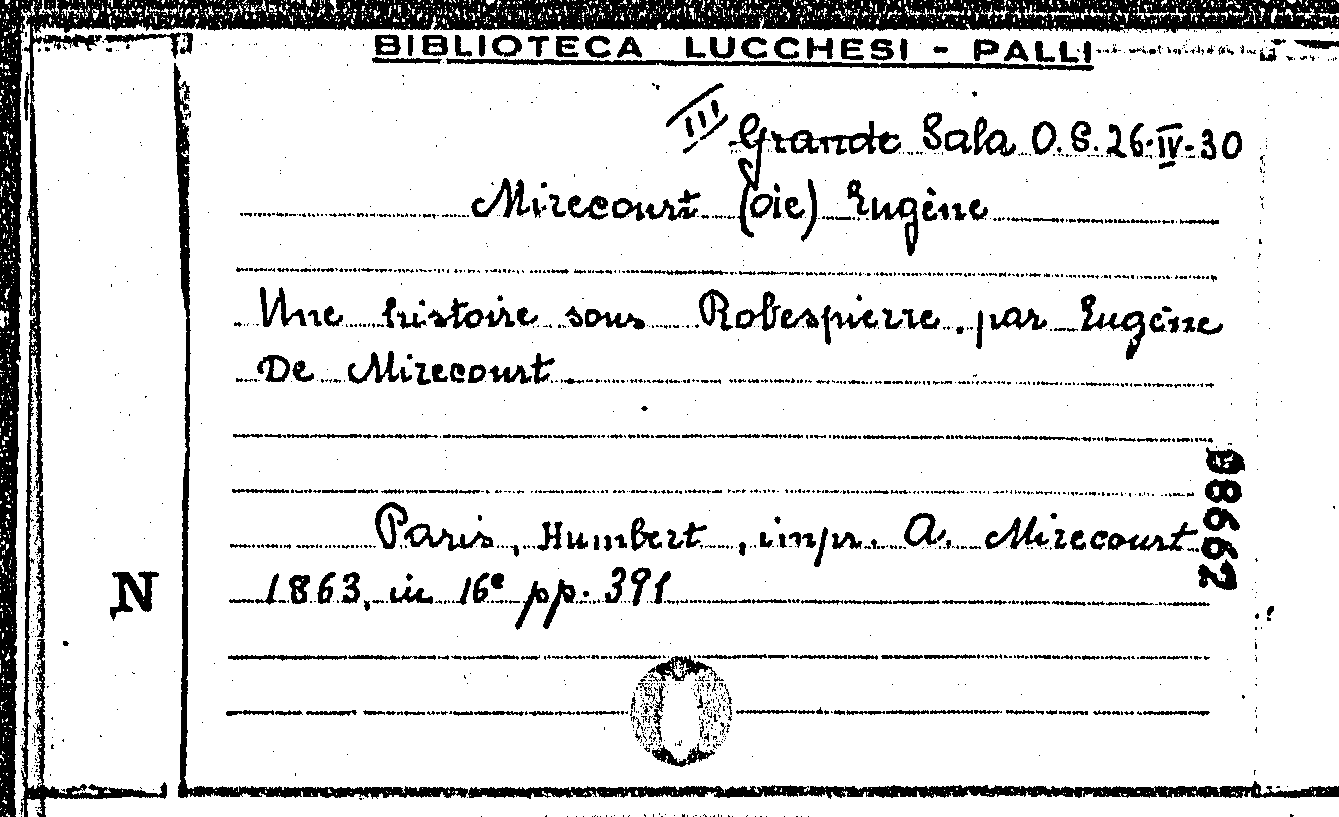 BIBLIOTECA LUCCHESI - PALLI
III Grande Sala O.S. 26.IV.30
Mirecourt (die) Eugène
Une histoire sous Robespierre, par Eugène
De Mirecourt
Paris, Humbert, impr. A. Mirecourt
1863, in 16e pp. 391
98662
N